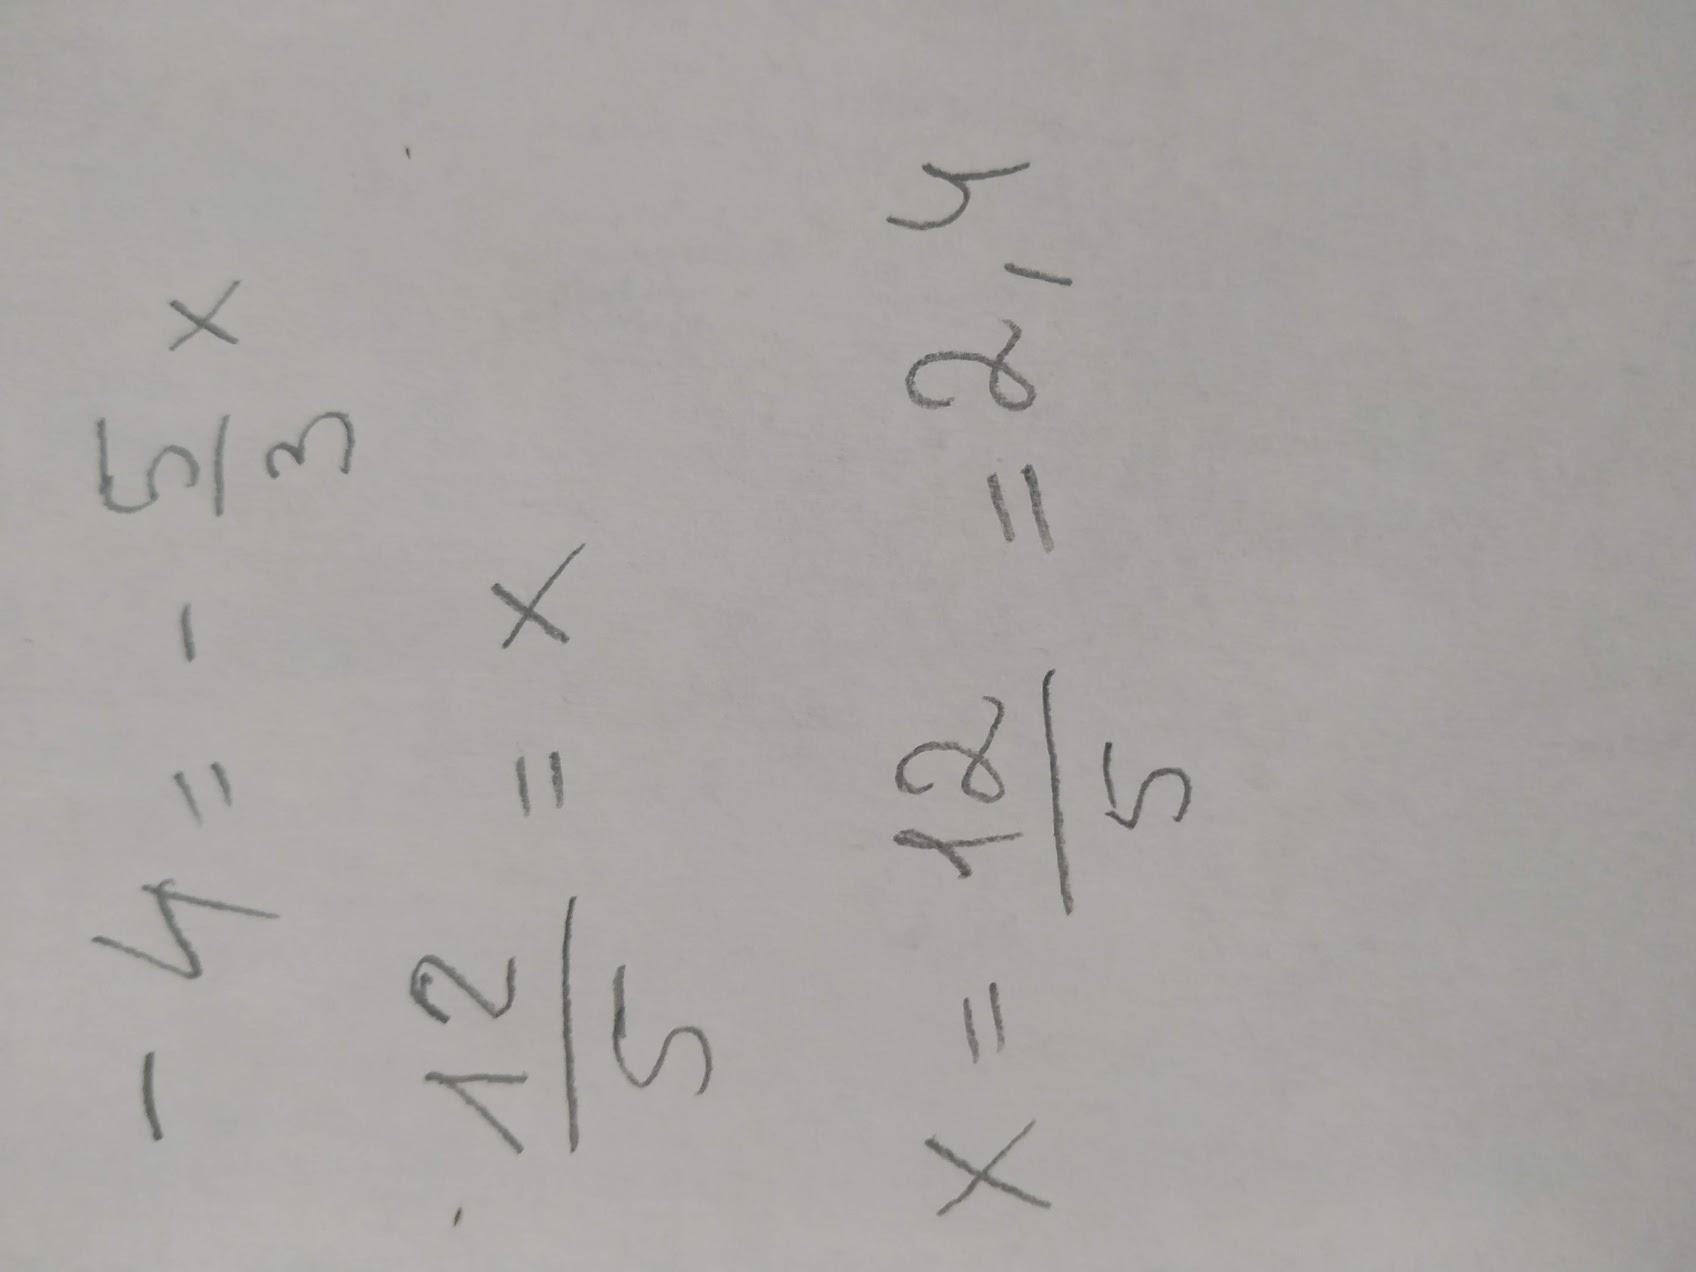 -4 = -5/3 x
12/5 = x
x = 12/5 = 2,4